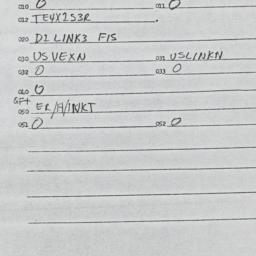 010 0 011 0
012 TE4X2S3R .
020 D2 LINK3 FIS
030 US VEXN 031 USLINKN
032 0 033 0
040 0
GFT
050 ER/A/INKT
051 0 052 0